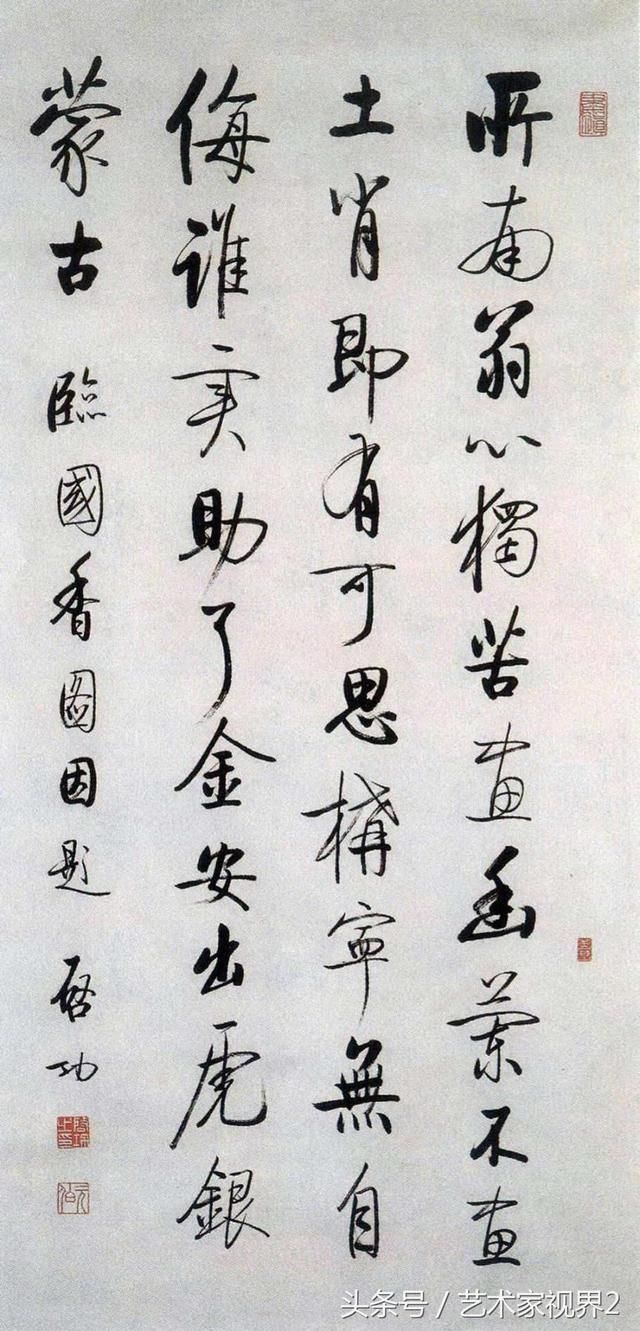 所南翁心獨苦画幽蘭不画
土肖即有可思構寧無自
侮誰实助了金安出虎銀
蒙古 臨國香圖因題 启功
头条号 / 艺术家视界2